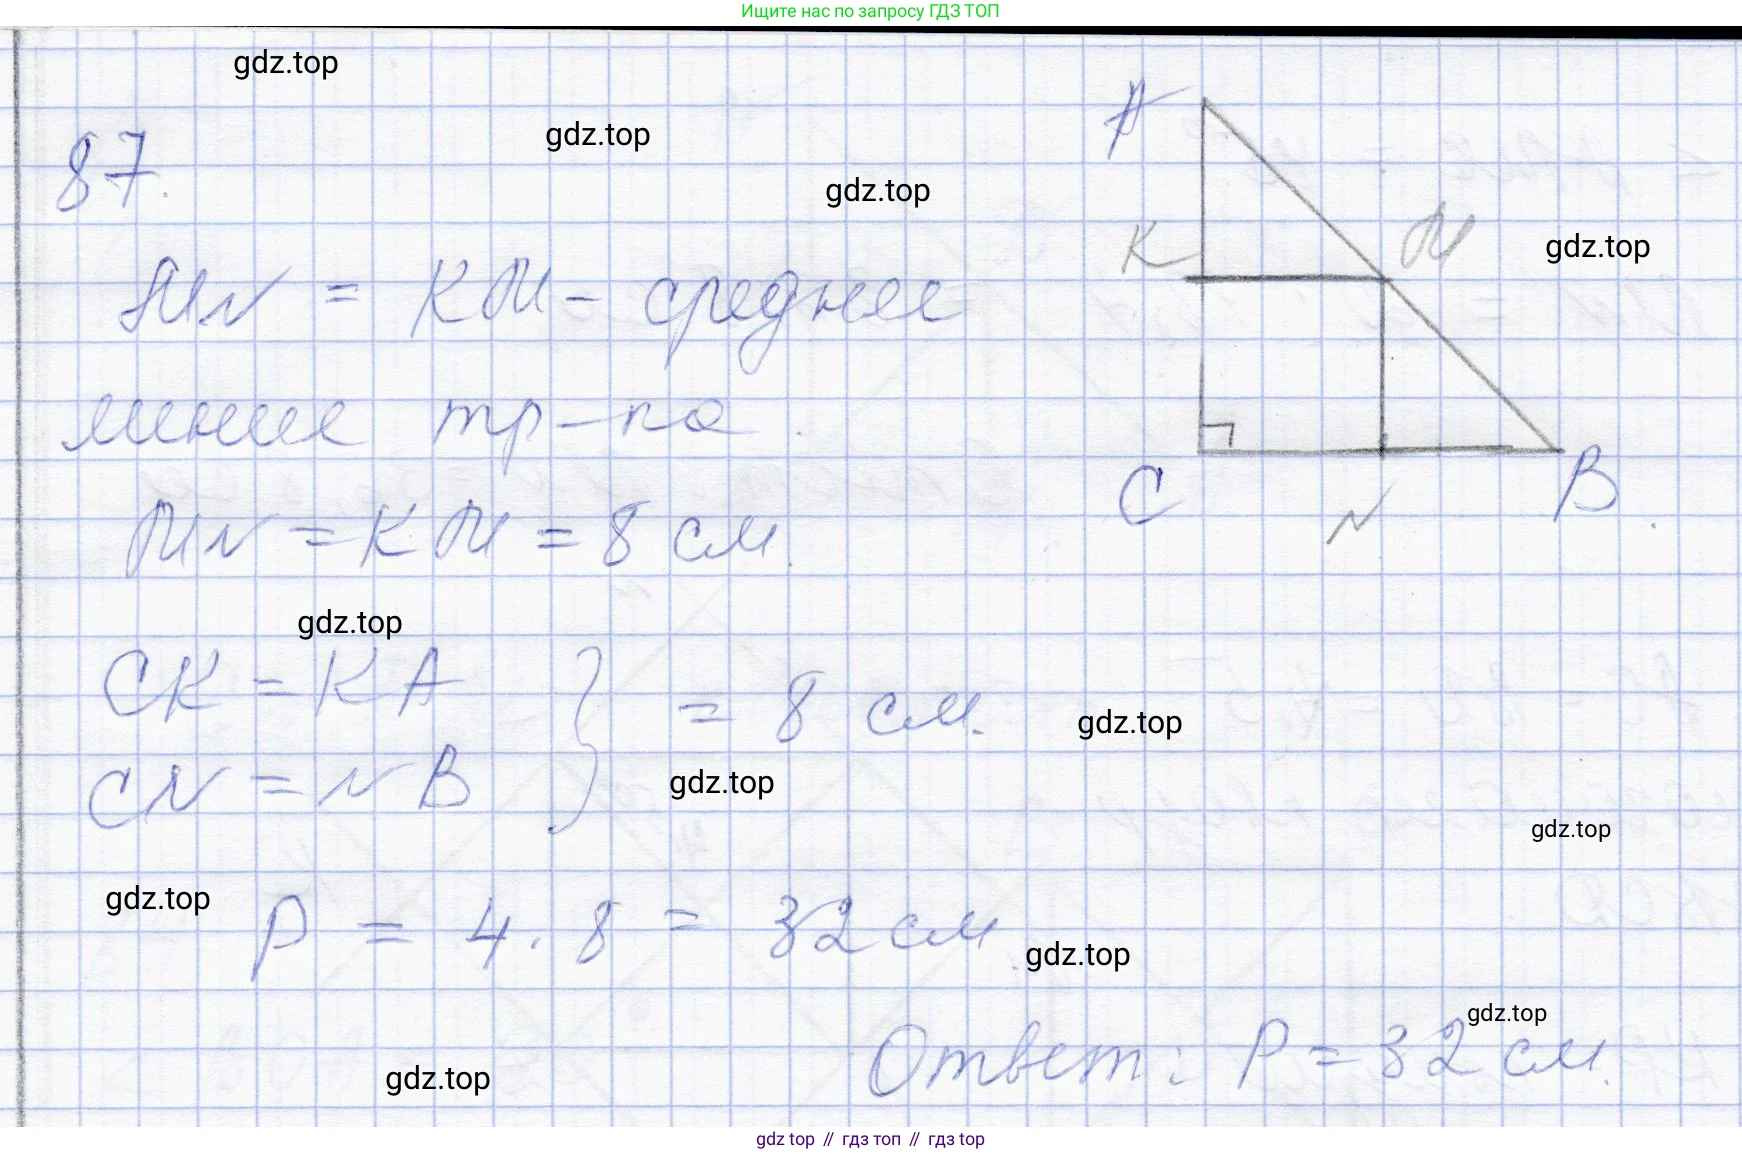 Ищите нас по запросу ГДЗ ТОП
gdz.top
87.
gdz.top
gdz.top
A
K
M
gdz.top
MN = KM - среднее
линие тр-ка.
C
N
B
MN = KM = 8 см.
gdz.top
CK = KA
CN = NB
} = 8 см.
gdz.top
gdz.top
gdz.top
gdz.top
P = 4 · 8 = 32 см.
gdz.top
gdz.top
Ответ: P = 32 см.
gdz.top
gdz top // гдз топ // гдз top